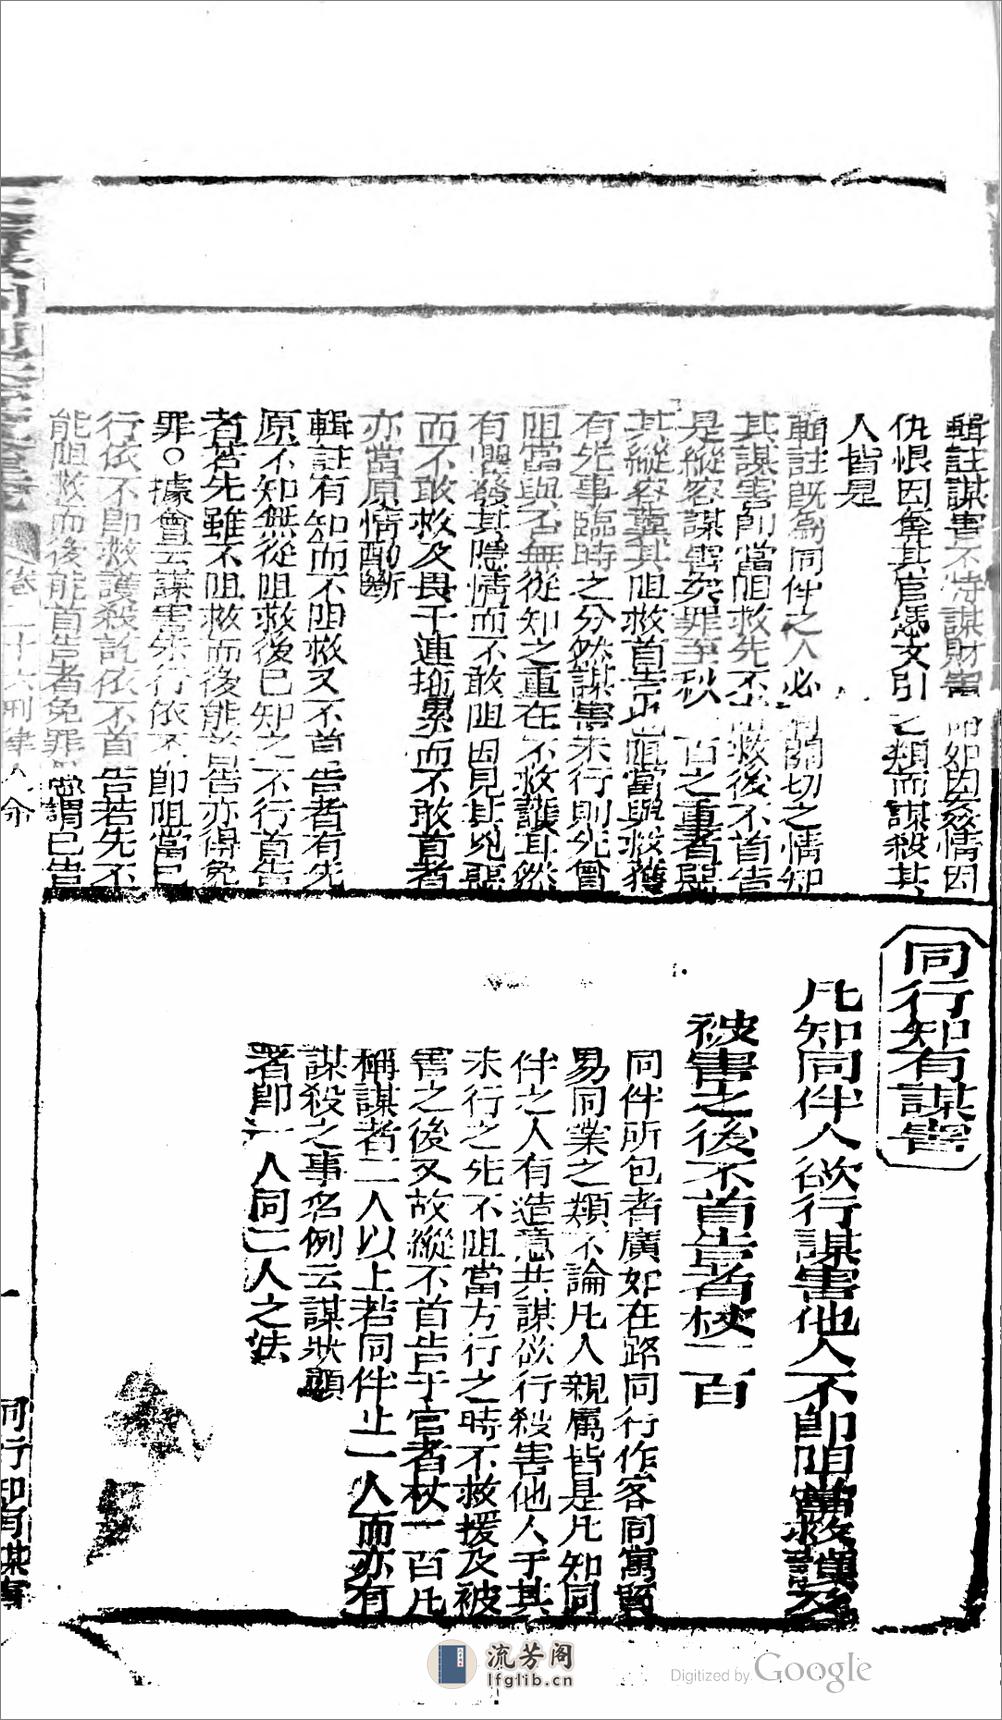 輯註謀害不特謀財害命如因姦情因
仇恨因奪其官憑文引之類而謀殺其
人皆是
輯註既為同伴之人必有關切之情知
其謀害即當阻救先不阻救後不首告
是縱容謀害矣罪至杖一百之重者惡
其縱容冀其阻救首告也阻當與救護
有先事臨時之分然謀害未行則先曾
阻當與否無從知之重在不救護耳然
有興發其隱情而不敢阻因見其兇惡
而不敢救及畏干連拖累而不敢首者
亦當原情酌斷
輯註有知而不阻救又不首告者有先
原不知無從阻救後已知之不行首告
者若先雖不阻救而後能首告亦得免
罪○據會云謀害未行依不即阻當已
行依不即救護殺訖依不首告若先不
能阻救而後能首告者免罪 謂已告
同行知有謀害
凡知同伴人欲行謀害他人不即阻當救護及
被害之後不首告者杖一百
同伴所包者廣如在路同行作客同寓貿
易同業之類不論凡人親屬皆是凡知同
伴之人有造意共謀欲行殺害他人于其
未行之先不阻當方行之時不救援及被
害之後又故縱不首告于官者杖一百凡
稱謀者二人以上若同伴止一人而亦有
謀殺之事名例云謀狀顯
著即一人同二人之法
卷二十六刑律人命
一
同行知有謀害
流芳阁
lfglib.cn
Digitized by Google